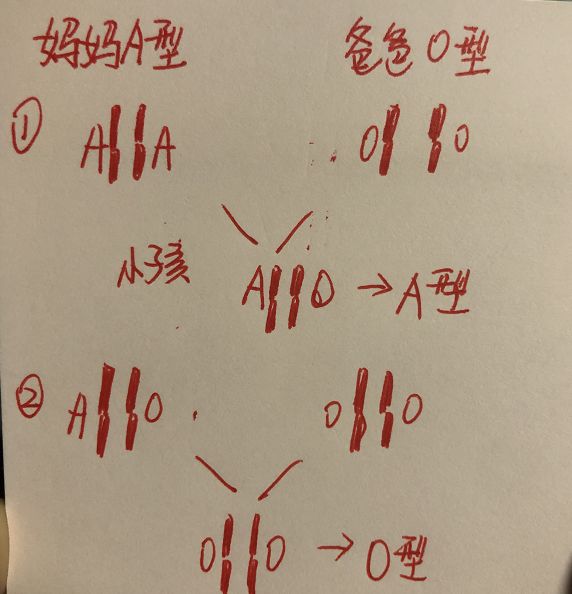 妈妈A型 爸爸O型
① A A O O
小孩 A O → A型
② A O O O
O O → O型